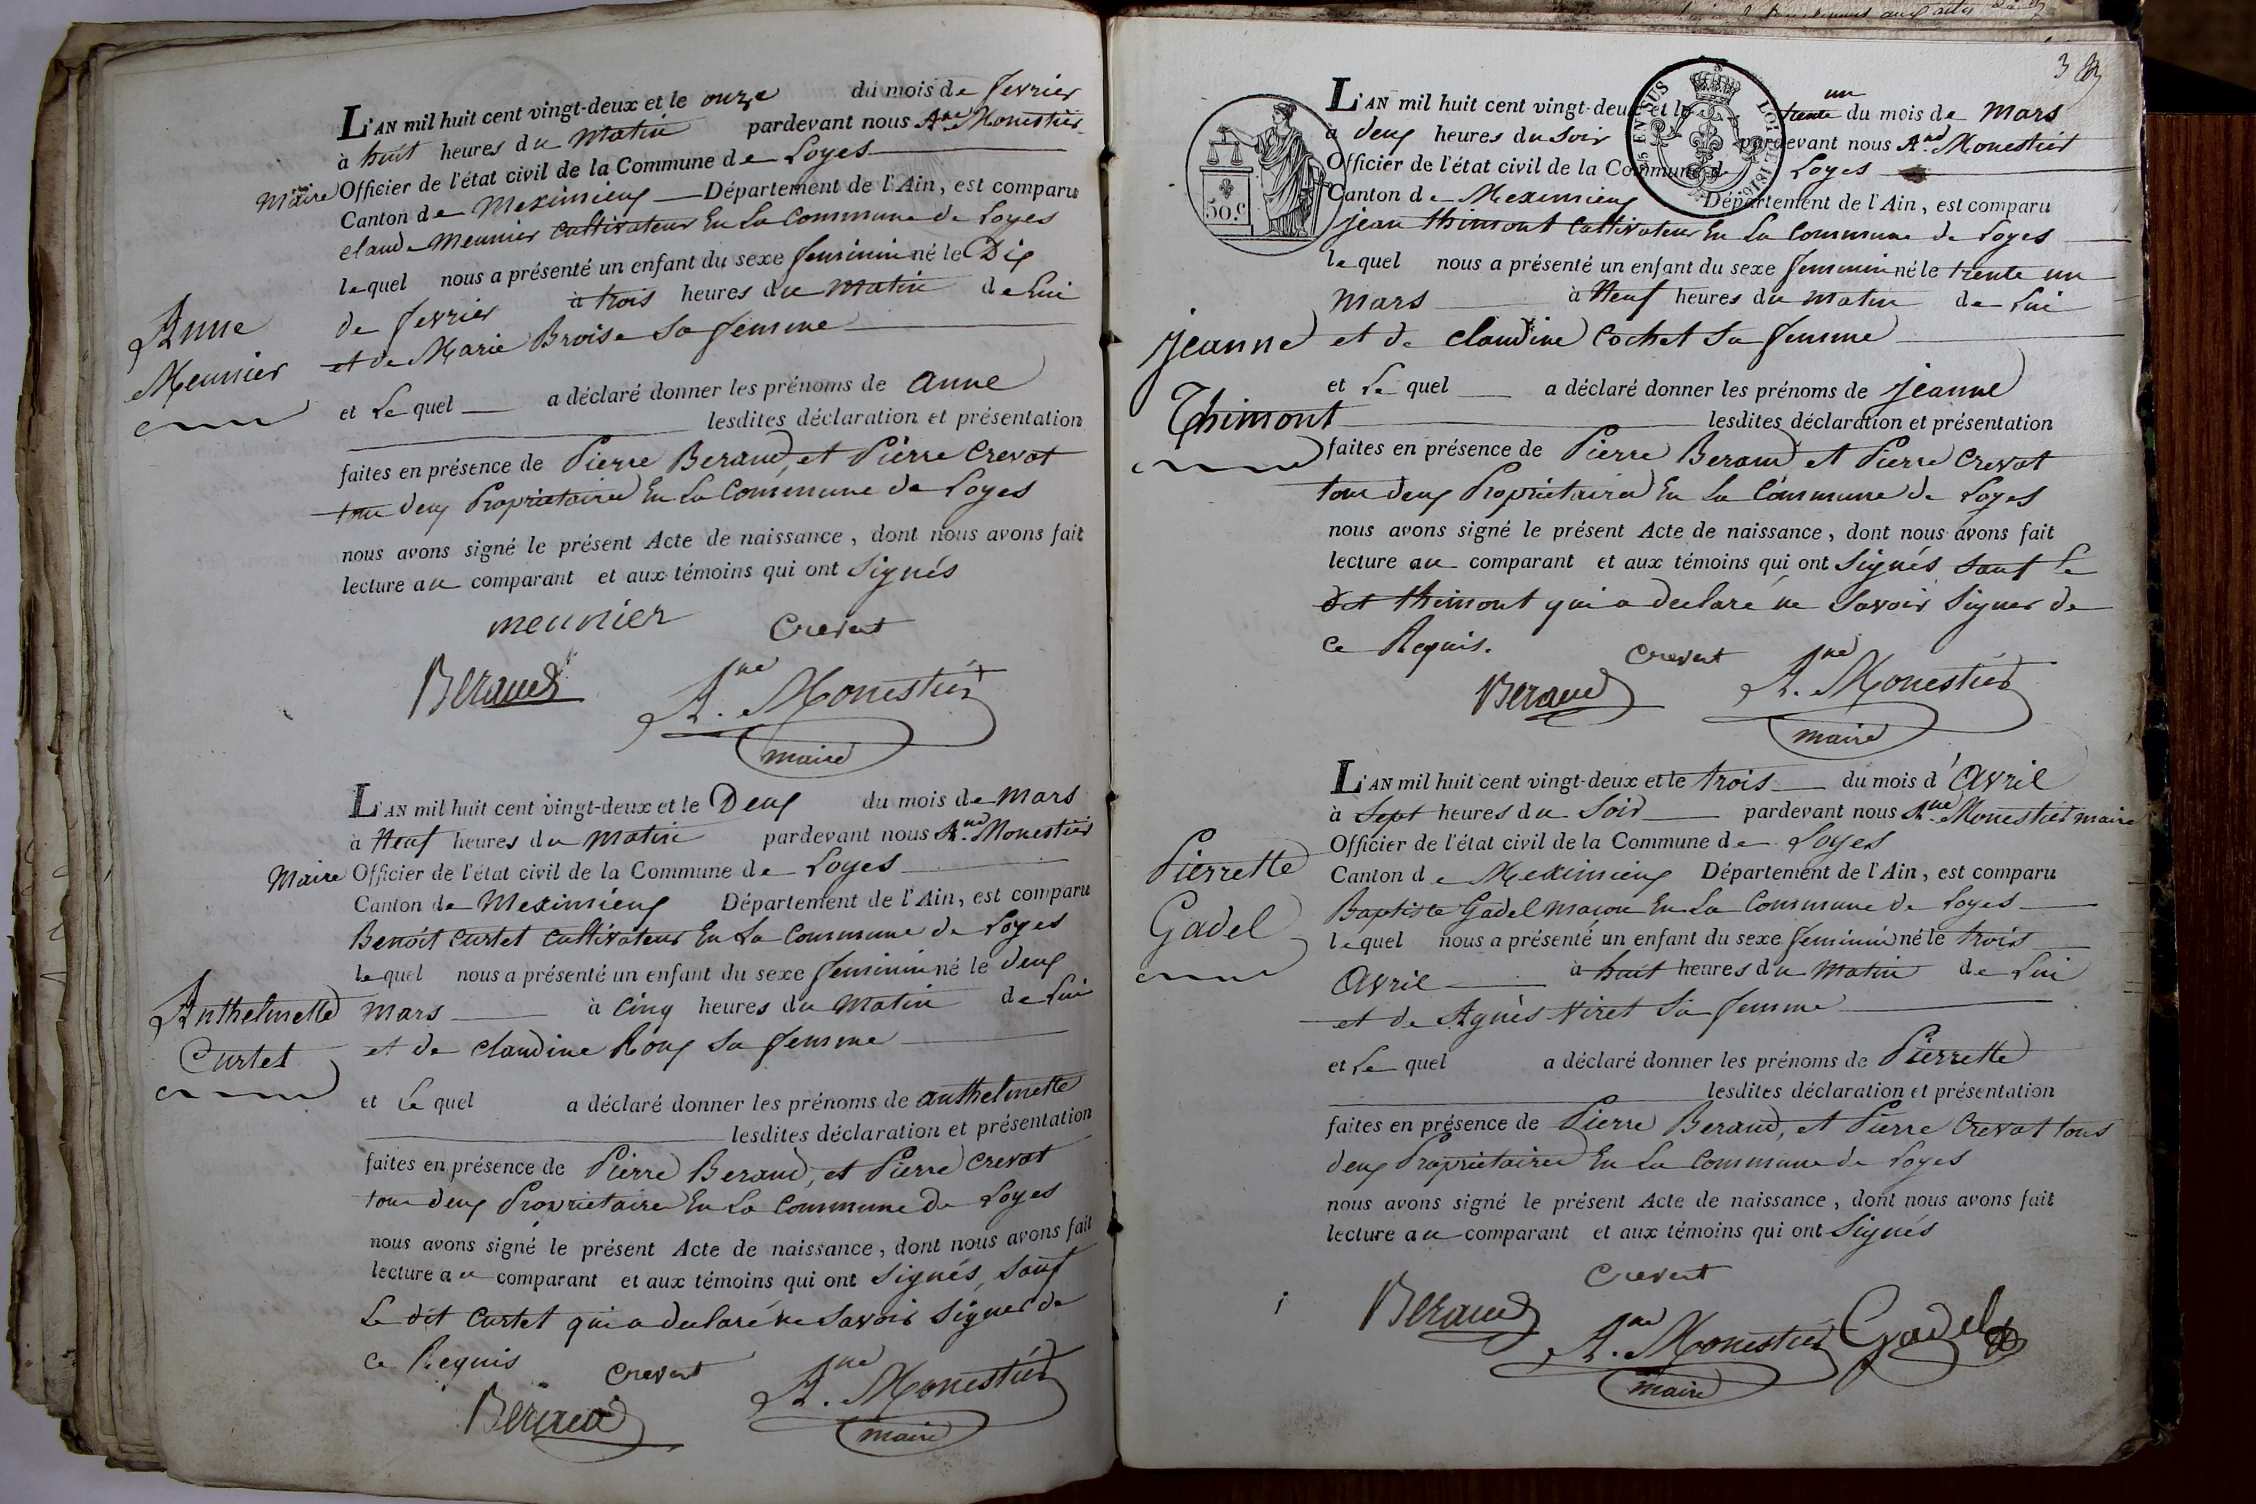 L'AN mil huit cent vingt-deux et le onze du mois de fevrier
à huit heures du matin pardevant nous Ane. Monestier
Maire Officier de l'état civil de la Commune de Loyes
Canton de Meximieux Département de l'Ain, est comparu
claude Meunier cultivateur En La Commune de Loyes
lequel nous a présenté un enfant du sexe feminin né le Dix
de fevrier à trois heures du matin de Lui
et de Marie Broise Sa femme
Anne
Meunier
et Le quel a déclaré donner les prénoms de anne
lesdites déclaration et présentation
faites en présence de Pierre Beraud, et Pierre Crevat
tous deux Proprietaires En La Commune de Loyes
nous avons signé le présent Acte de naissance, dont nous avons fait
lecture au comparant et aux témoins qui ont Signés
meunier Crevat
Beraud Ane. Monestier
maire
L'AN mil huit cent vingt-deux et le Deux du mois de Mars
à Neuf heures du matin pardevant nous Ane. Monestier
Maire Officier de l'état civil de la Commune de Loyes
Canton de Meximieux Département de l'Ain, est comparu
Benoit Curtet cultivateur En La Commune de Loyes
lequel nous a présenté un enfant du sexe feminin né le deux
mars à cinq heures du matin de Lui
et de claudine Roux Sa femme
Anthelmette
Curtet
et Le quel a déclaré donner les prénoms de anthelmette
lesdites déclaration et présentation
faites en présence de Pierre Beraud, et Pierre Crevat
tous deux Proprietaires En La Commune De Loyes
nous avons signé le présent Acte de naissance, dont nous avons fait
lecture au comparant et aux témoins qui ont Signés, Sauf
Le dit Curtet qui a declaré ne Savoir Signer de
ce Requis Crevat
Beraud Ane. Monestier
maire
3
50.c
EN SUS
LOI DE 1816
un
L'AN mil huit cent vingt-deux et le trente du mois de Mars
à deux heures du Soir pardevant nous Ane. Monestier
Officier de l'état civil de la Commune de Loyes
Canton de Meximieux Département de l'Ain, est comparu
jean thimont cultivateur En La Commune de Loyes
lequel nous a présenté un enfant du sexe feminin né le trente un
Mars à Neuf heures du matin de Lui
et de claudine Cochet Sa femme
jeanne
Thimont
et Le quel a déclaré donner les prénoms de jeanne
lesdites déclaration et présentation
faites en présence de Pierre Beraud et Pierre Crevat
tous deux Proprietaires En La Commune de Loyes
nous avons signé le présent Acte de naissance, dont nous avons fait
lecture au comparant et aux témoins qui ont Signés Sauf Le
dit thimont qui a declaré ne Savoir Signer de
ce Requis. Crevat
Beraud Ane. Monestier
maire
L'AN mil huit cent vingt-deux et le trois du mois d'Avril
à Sept heures du Soir pardevant nous Ane. Monestier maire
Officier de l'état civil de la Commune de Loyes
Canton de Meximieux Département de l'Ain, est comparu
Baptiste Gadel maçon En La Commune de Loyes
lequel nous a présenté un enfant du sexe feminin né le trois
Avril à huit heures du matin de Lui
et de Agnès Niret Sa femme
Pierrette
Gadel
et Le quel a déclaré donner les prénoms de Pierrette
lesdites déclaration et présentation
faites en présence de Pierre Beraud, et Pierre Crevat tous
deux Proprietaires En La Commune de Loyes
nous avons signé le présent Acte de naissance, dont nous avons fait
lecture au comparant et aux témoins qui ont Signés
Crevat
Beraud Ane. Monestier Gadel
maire